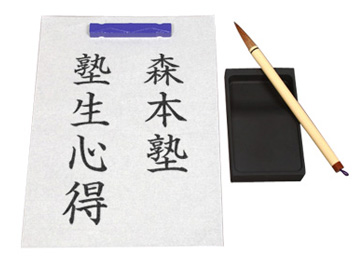 森本塾
塾生心得